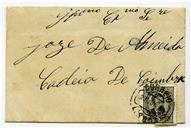 Illmo Exmo Snr
Joze De Almeida
Cadeia De Coimbra